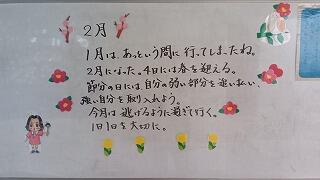 2月
1月は、あっという間に行ってしまったね。
2月になった。4日には春を迎える。
節分の日には、自分の弱い部分を追い払い、
強い自分を取り入れよう。
今月は逃げるように過ぎて行く。
1日1日を大切に。